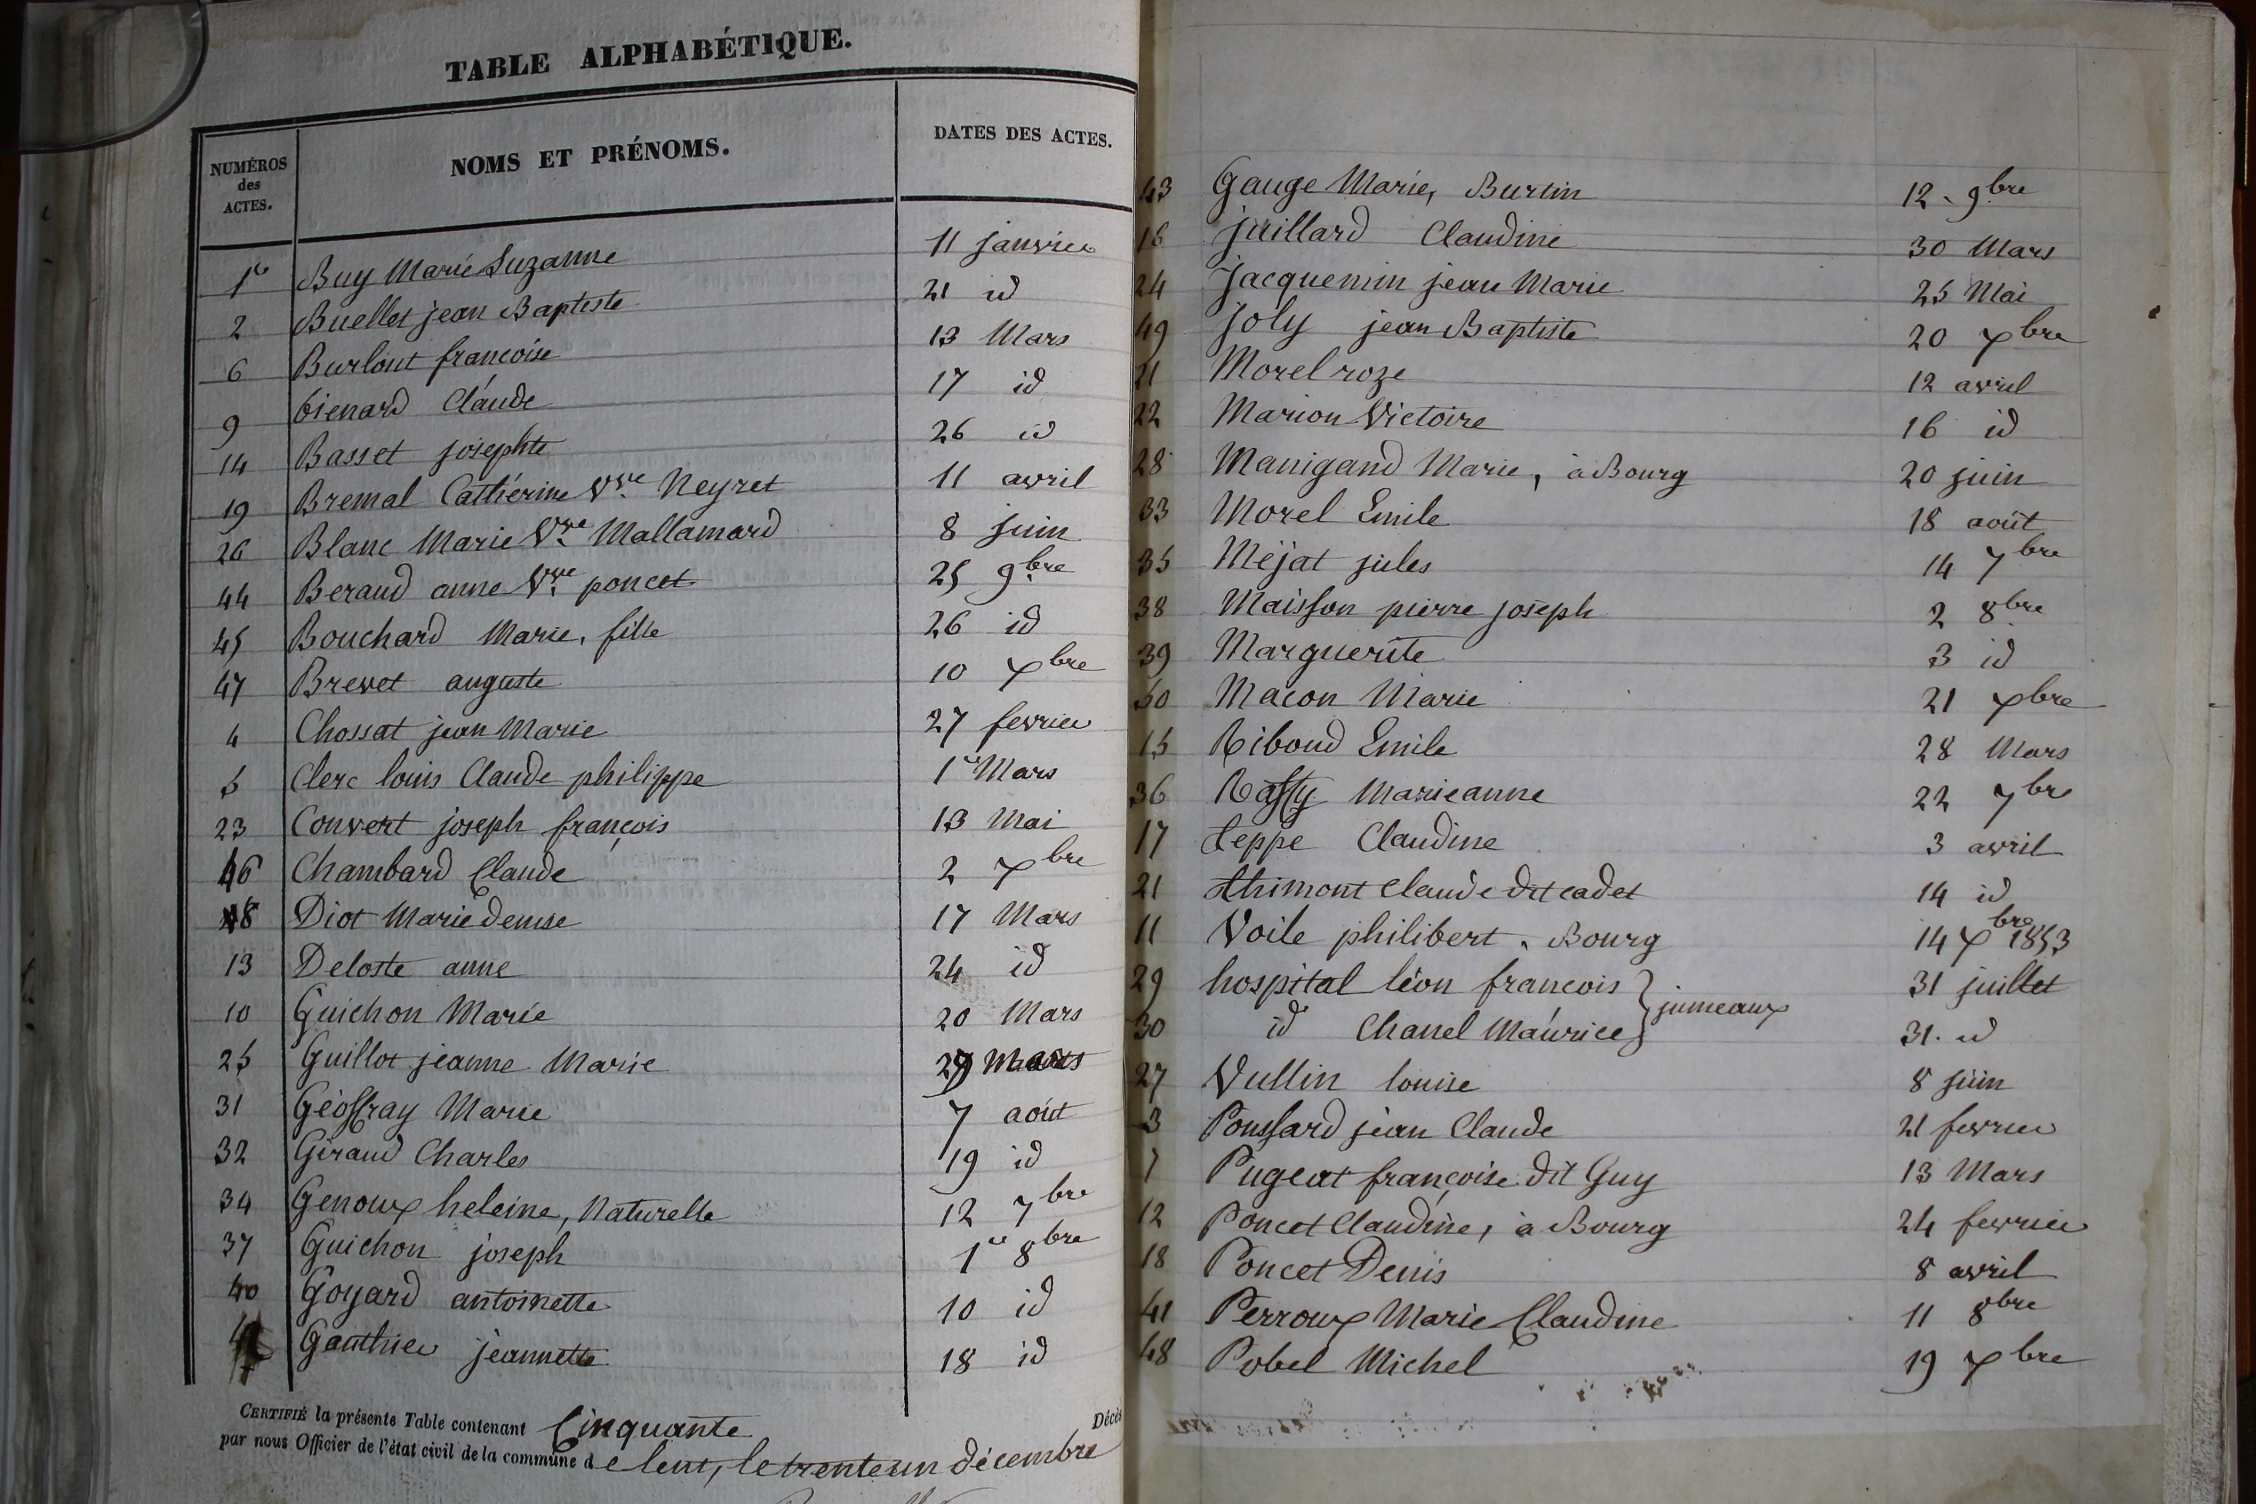 TABLE ALPHABÉTIQUE.
NUMÉROS des ACTES. NOMS ET PRÉNOMS. DATES DES ACTES.
1er Buy Marie Suzanne 11 janvier
2 Buellet jean Baptiste 21 id
6 Burlout francoise 13 Mars
9 bienard Claude 17 id
14 Basset josephte 26 id
19 Bremal Cathérine Vve Neyret 11 avril
26 Blanc Marie Vve Mallamard 8 juin
44 Beraud anne Vve poncet 25 9bre
45 Bouchard Marie, fille 26 id
47 Brevet auguste 10 xbre
4 Chossat jean Marie 27 fevrier
5 Clerc louis Claude philippe 1er Mars
23 Convert joseph françois 13 Mai
46 Chambard Claude 2 xbre
8 Diot Marie denise 17 Mars
13 Deloste anne 24 id
10 Guichon Marie 20 Mars
25 Guillot jeanne Marie 29
31 Géoffray Marie 7 août
32 Giraud Charles 19 id
34 Genoux heleine, Naturelle 12 7bre
37 Guichon joseph 1er 8bre
40 Goyard antoinette 10 id
Gauthier jeannette 18 id
CERTIFIÉ la présente Table contenant Cinquante Décès
par nous Officier de l'état civil de la commune de lent, le trente un décembre
43 Gauge Marie, Burtin 12 9bre
16 juillard Claudine 30 Mars
24 Jacquemin jean Marie 25 Mai
49 Joly jean Baptiste 20 xbre
21 Morel roze 12 avril
22 Marion Victoire 16 id
28 Manigand Marie, à Bourg 20 juin
33 Morel Emile 18 août
35 Méjat jules 14 7bre
38 Maisson pierre joseph 2 8bre
39 Marguerite 3 id
50 Macon Marie 21 xbre
15 Riboud Emile 28 Mars
36 Raffy Marieanne 22 7bre
17 teppe Claudine 3 avril
21 thimont claude dit cadet 14 id
11 Voile philibert, Bourg 14 xbre 1853
29 hospital léon francois } jumeaux 31 juillet
30 id Chanel Maurice } 31 id
27 Vullin louise 8 juin
3 Poussard jean Claude 21 fevrier
7 Pugeat françoise dit Guy 13 Mars
12 Poncet Claudine, à Bourg 24 fevrier
18 Poncet Denis 8 avril
41 Perroux Marie Claudine 11 8bre
48 Pobel Michel 19 xbre